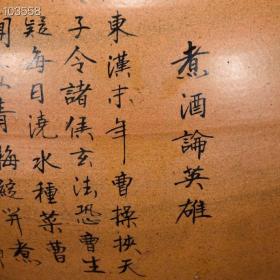 103558
煮酒論英雄
東漢末年曹操挾天
子令諸侯玄法恐曹生
疑每日澆水種菜曹
青梅綻并煮